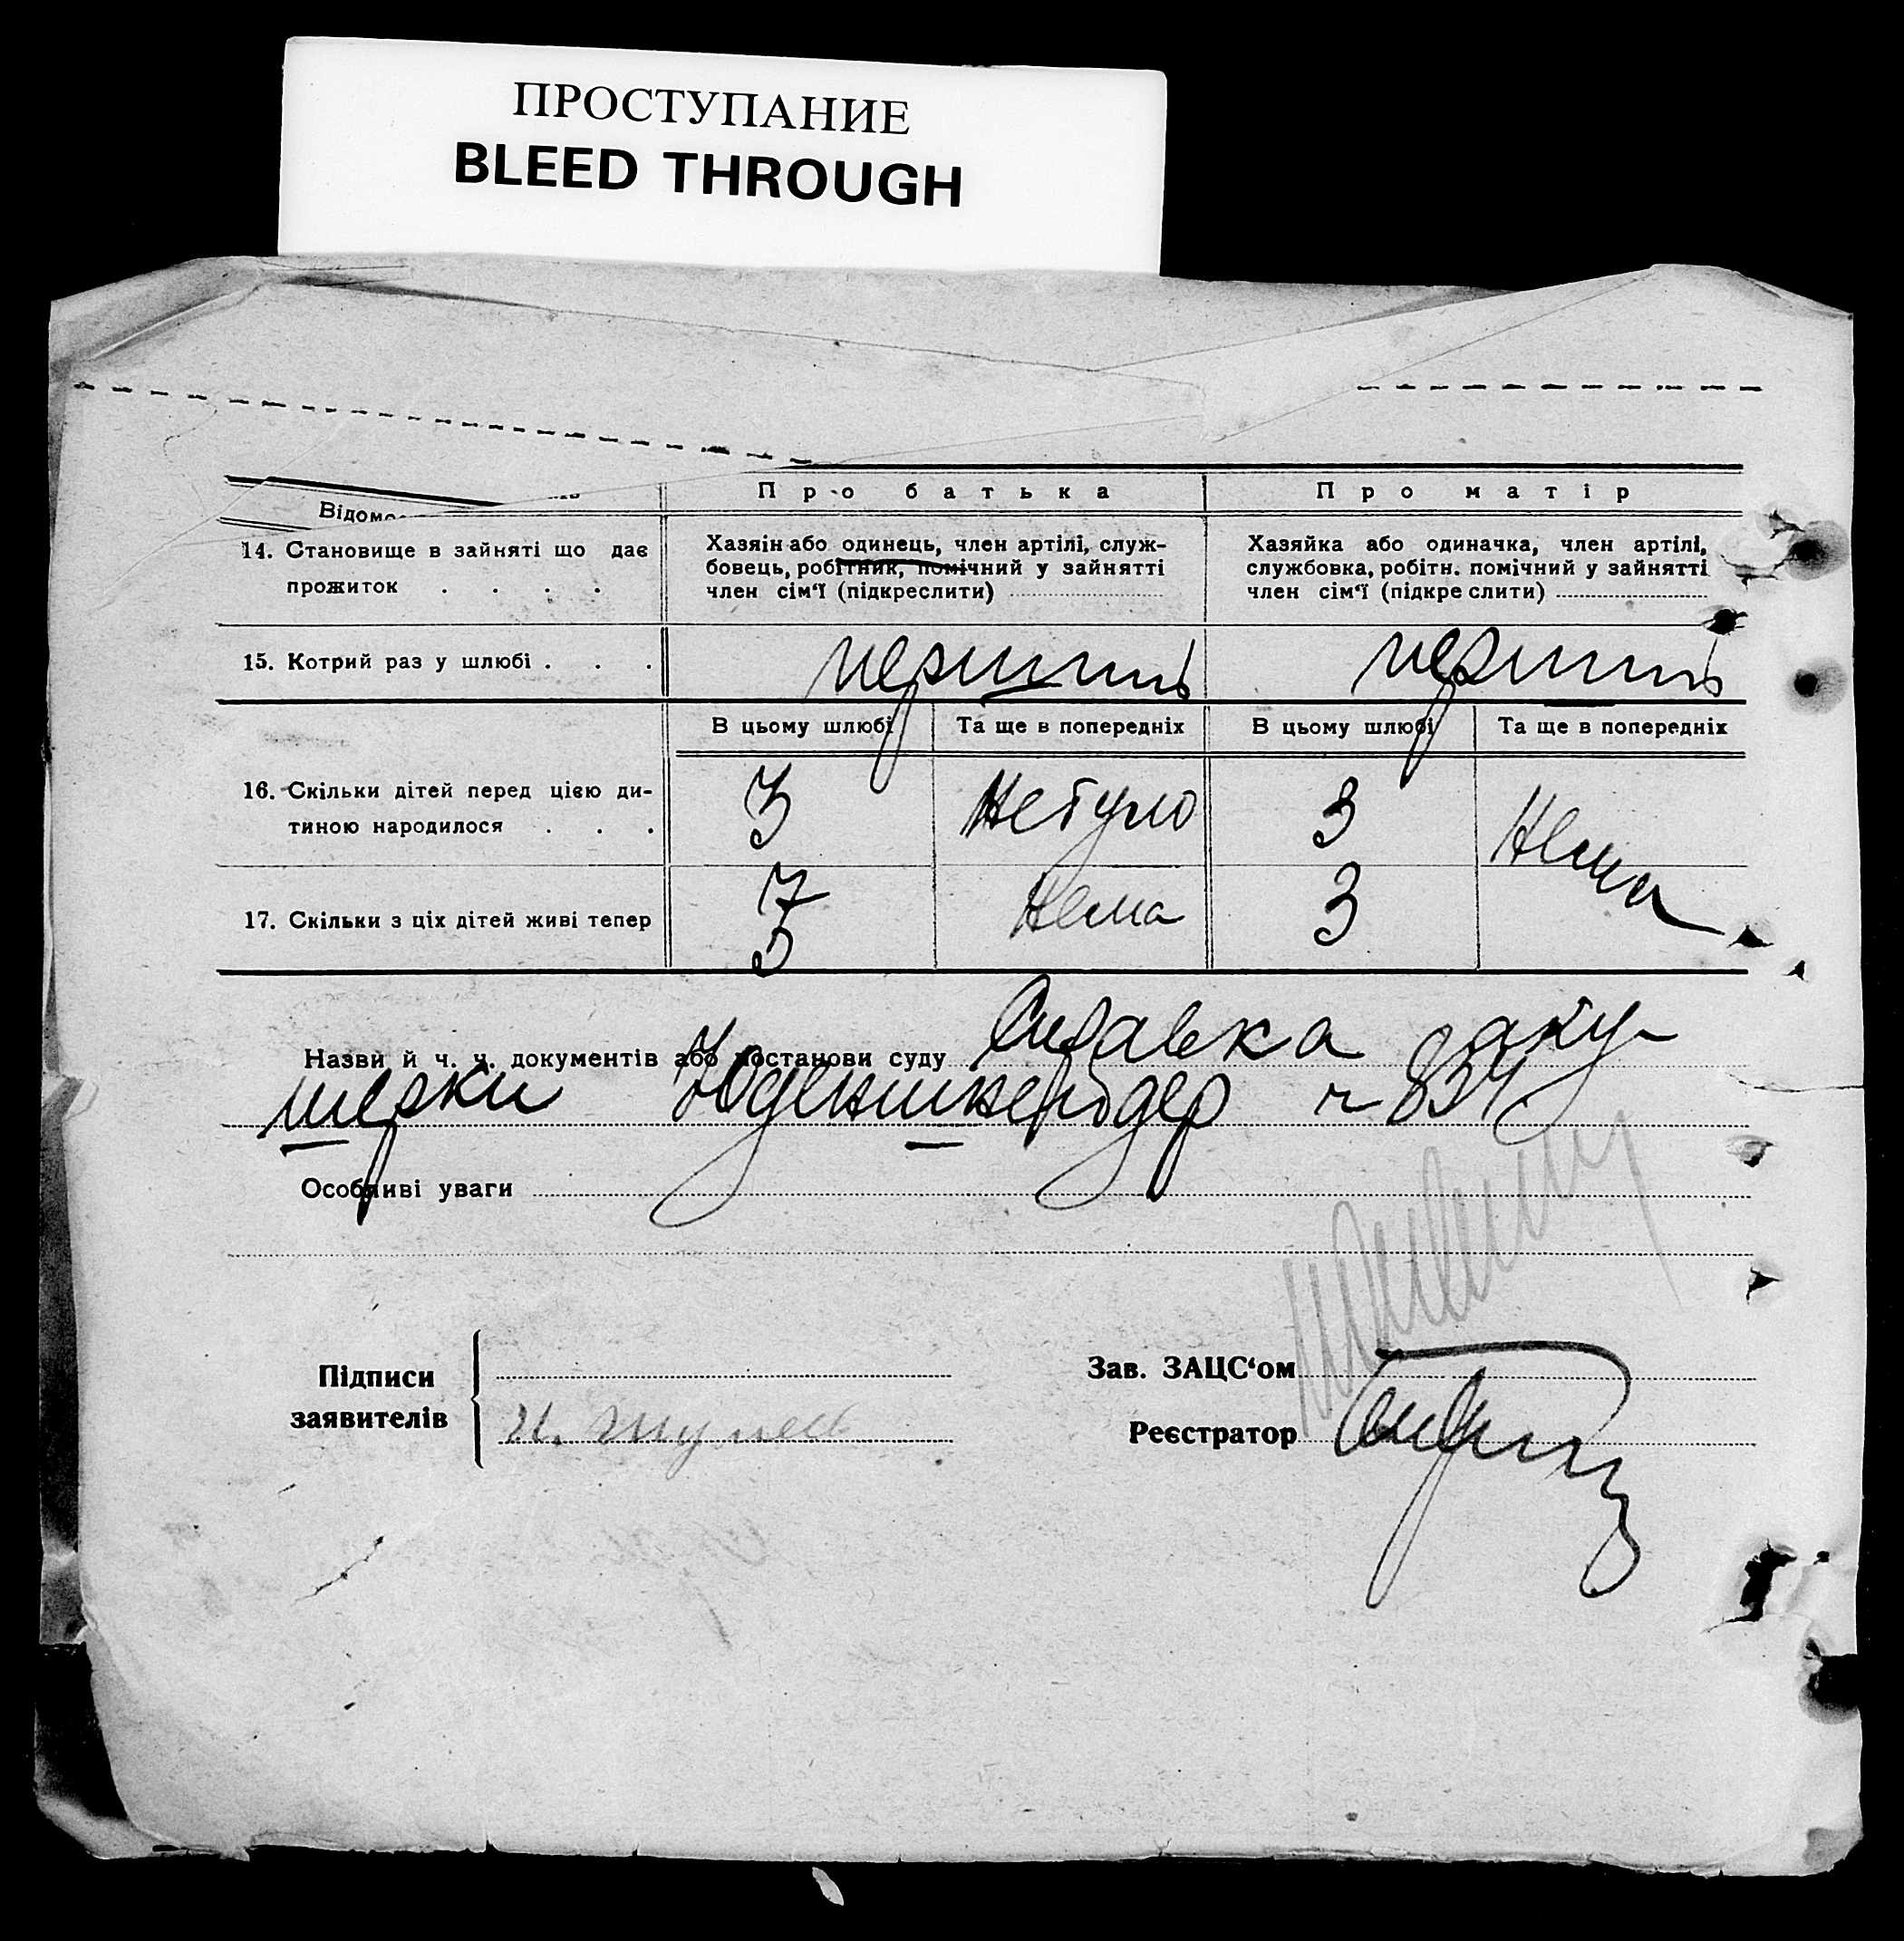 ПРОСТУПАНИЕ
BLEED THROUGH
Відомо
Про батька
Про матір
14. Становище в зайняті що дає
прожиток . . . .
Хазяїн або одинець, член артілі, служ-
бовець, робітник, помічний у зайнятті
член сім'ї (підкреслити)
Хазяйка або одиначка, член артілі,
службовка, робітн. помічний у зайнятті
член сім'ї (підкреслити)
15. Котрий раз у шлюбі . . .
перший
перший
В цьому шлюбі
Та ще в попередніх
В цьому шлюбі
Та ще в попередніх
16. Скільки дітей перед цією ди-
тиною народилося . . .
3
Не було
3
Нема
17. Скільки з ціх дітей живі тепер
3
Нема
3
Назви й ч. ч. документів або постанови суду Справка аку-
шерки ч 834
Особливі уваги
Підписи
заявителів
И.
Зав. ЗАЦС'ом
Реєстратор